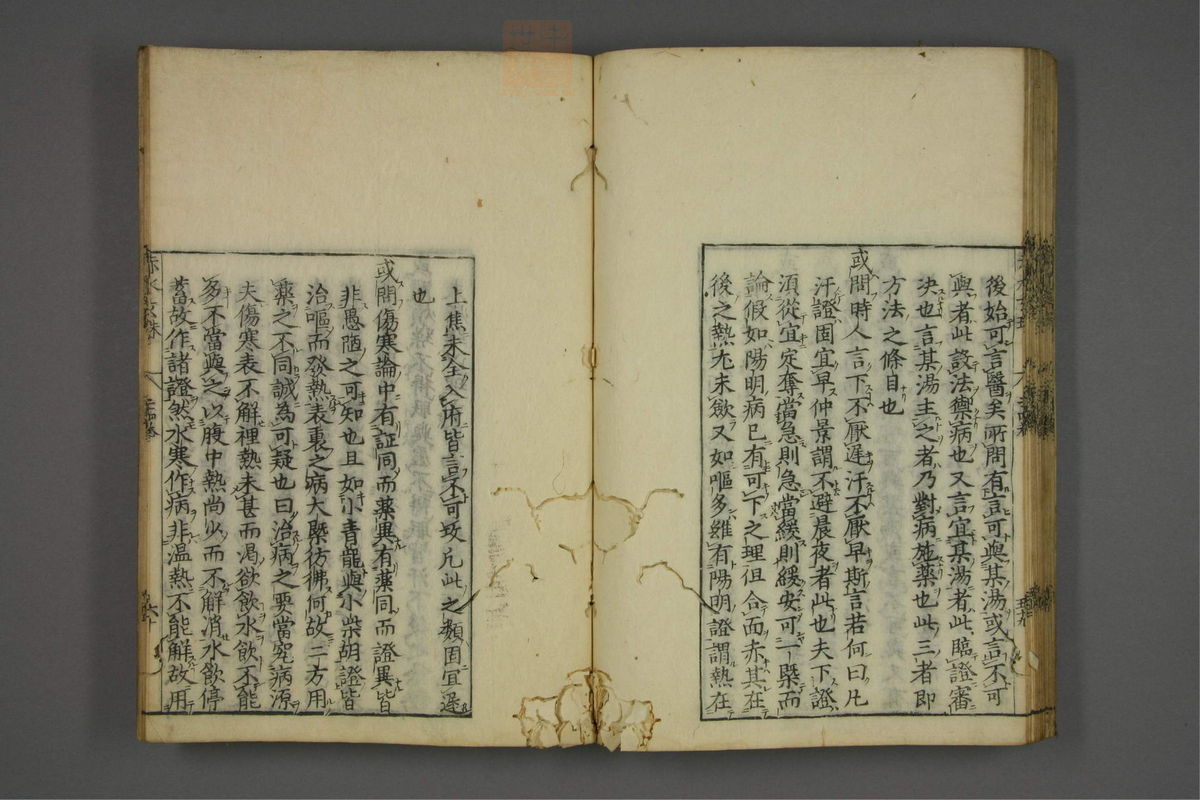 後始可言醫矣所問有言可與某湯或言不可
與者此設法禦病也又言宜某湯者此臨證審
決也言某湯主之者乃對病施藥也此三者即
方法之條目也
或問時人言下不厭遲汗不厭早斯言若何曰凡
汗證固宜早仲景謂不避晨夜者此也夫下證
須從宜定奪當急則急當緩則緩安可一槩而
論假如陽明病已有可下之理但合面赤其在
後之熱尢未斂又如嘔多雖有陽明證謂熱在
上焦未全入府皆言不可攻凡此之類固宜遲
也
或問傷寒論中有証同而藥異有藥同而證異皆
非愚陋之可知也且如小青龍與小柴胡證皆
治嘔而發熱表裏之病大槩彷彿何故二方用
藥之不同誠為可疑也曰治病之要當究病源
夫傷寒表不解裡熱未甚而渴欲飲水飲不能
多不當與之以腹中熱尚少而不解消水飲停
蓄故作諸證然水寒作病非溫熱不能解故用